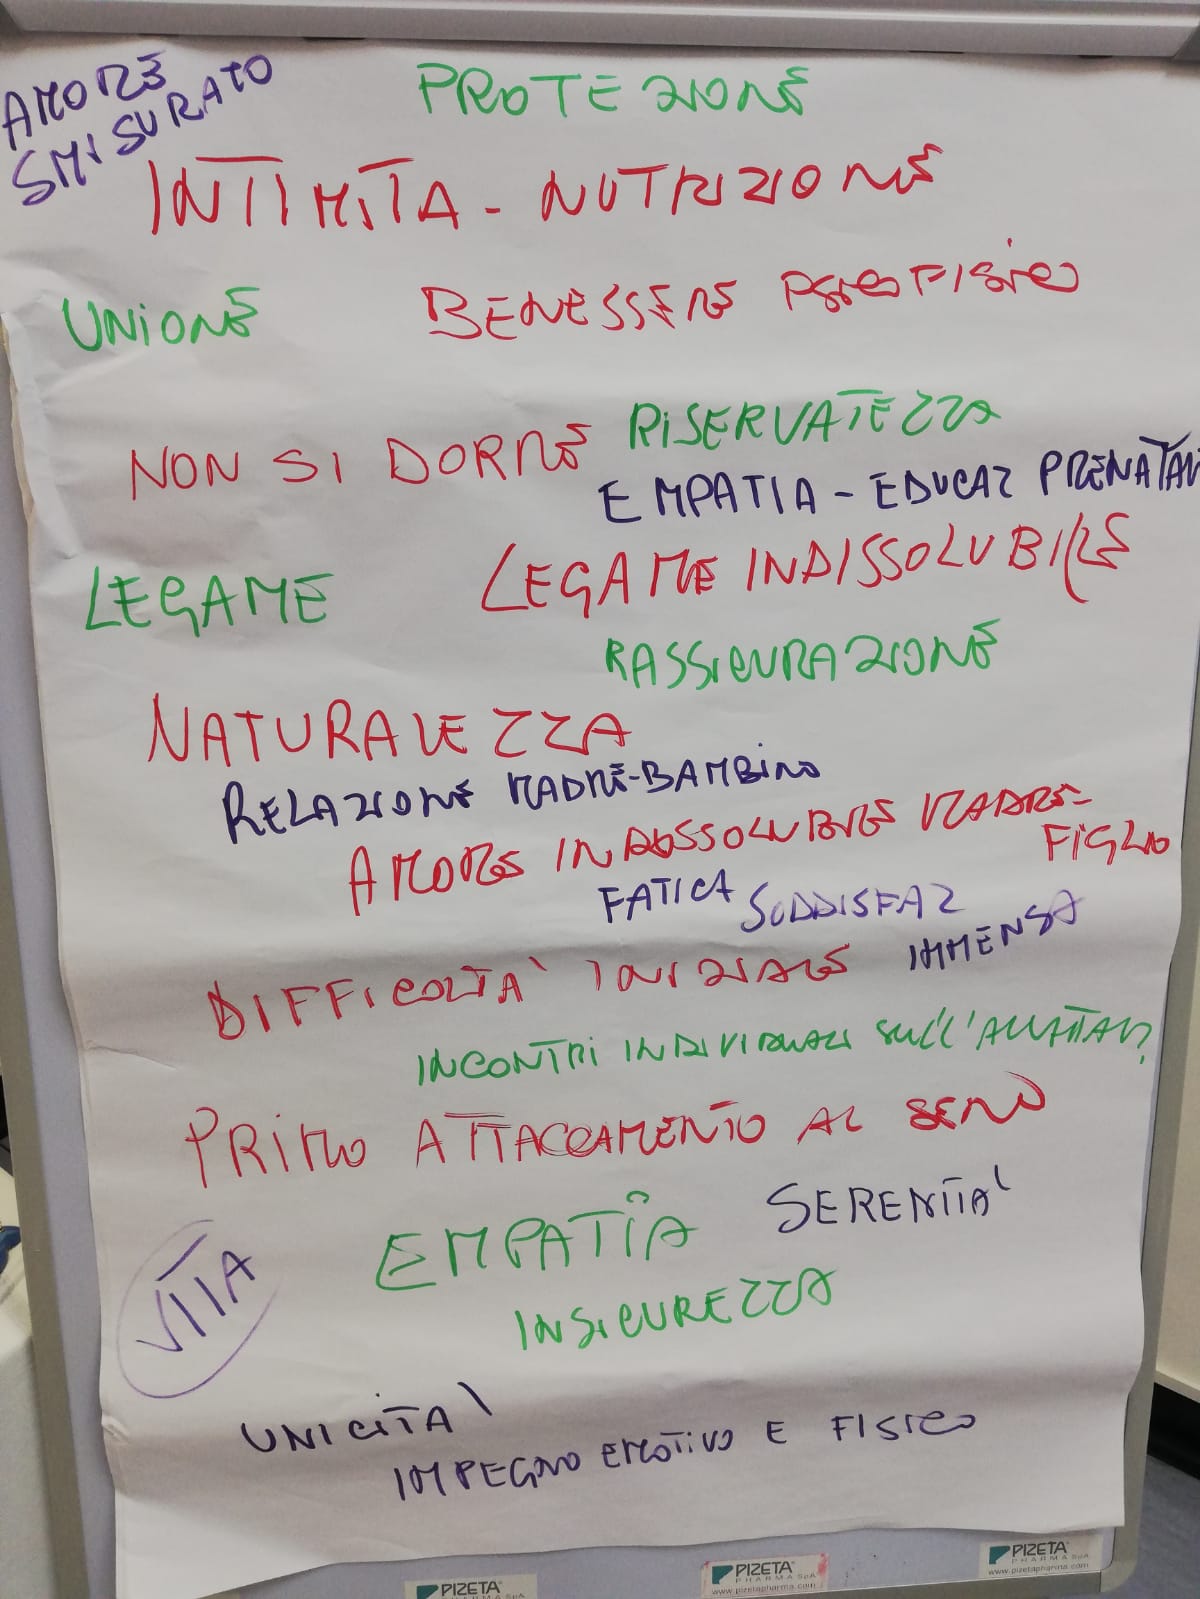 AMORE
SMISURATO
PROTEZIONE
INTIMITA - NUTRIZIONE
UNIONE
BENESSERE PSICOFISICO
NON SI DORME
RISERVATEZZA
EMPATIA - EDUCAZ PRENATAL
LEGAME
LEGAME INDISSOLUBILE
RASSICURAZIONE
NATURALEZZA
RELAZIONE MADRE-BAMBINO
AMORE INDISSOLUBILE MADRE-
FIGLIO
FATICA
SODDISFAZ
IMMENSA
DIFFICOLTA' INIZIALE
INCONTRI INDIVIDUALI SULL'ALLATTAM
PRIMO ATTACCAMENTO AL SENO
EMPATIA
SERENITA'
VITA
INSICUREZZA
UNICITA'
IMPEGNO EMOTIVO E FISICO
PIZETA
PHARMA SpA
www.pizetapharma.com
PIZETA
PHARMA SpA
www.pizetapharma.com
PIZETA
PHARMA SpA